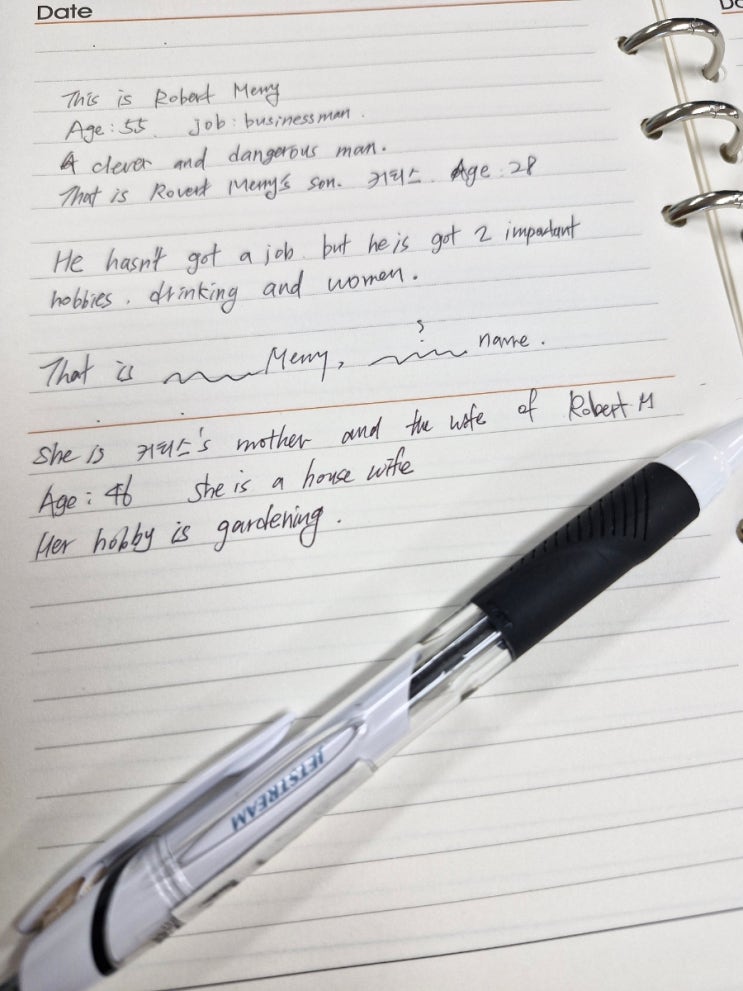 Date
This is Robert Merry
Age : 55 Job : businessman.
A clever and dangerous man.
That is Rovert Merry's son. 커티스. Age : 28
He hasn't got a job but he is got 2 important
hobbies. drinking and women.
?
That is Merry, name.
She is 커티스's mother and the wife of Robert M
Age : 46 She is a house wife
Her hobby is gardening.
JETSTREAM